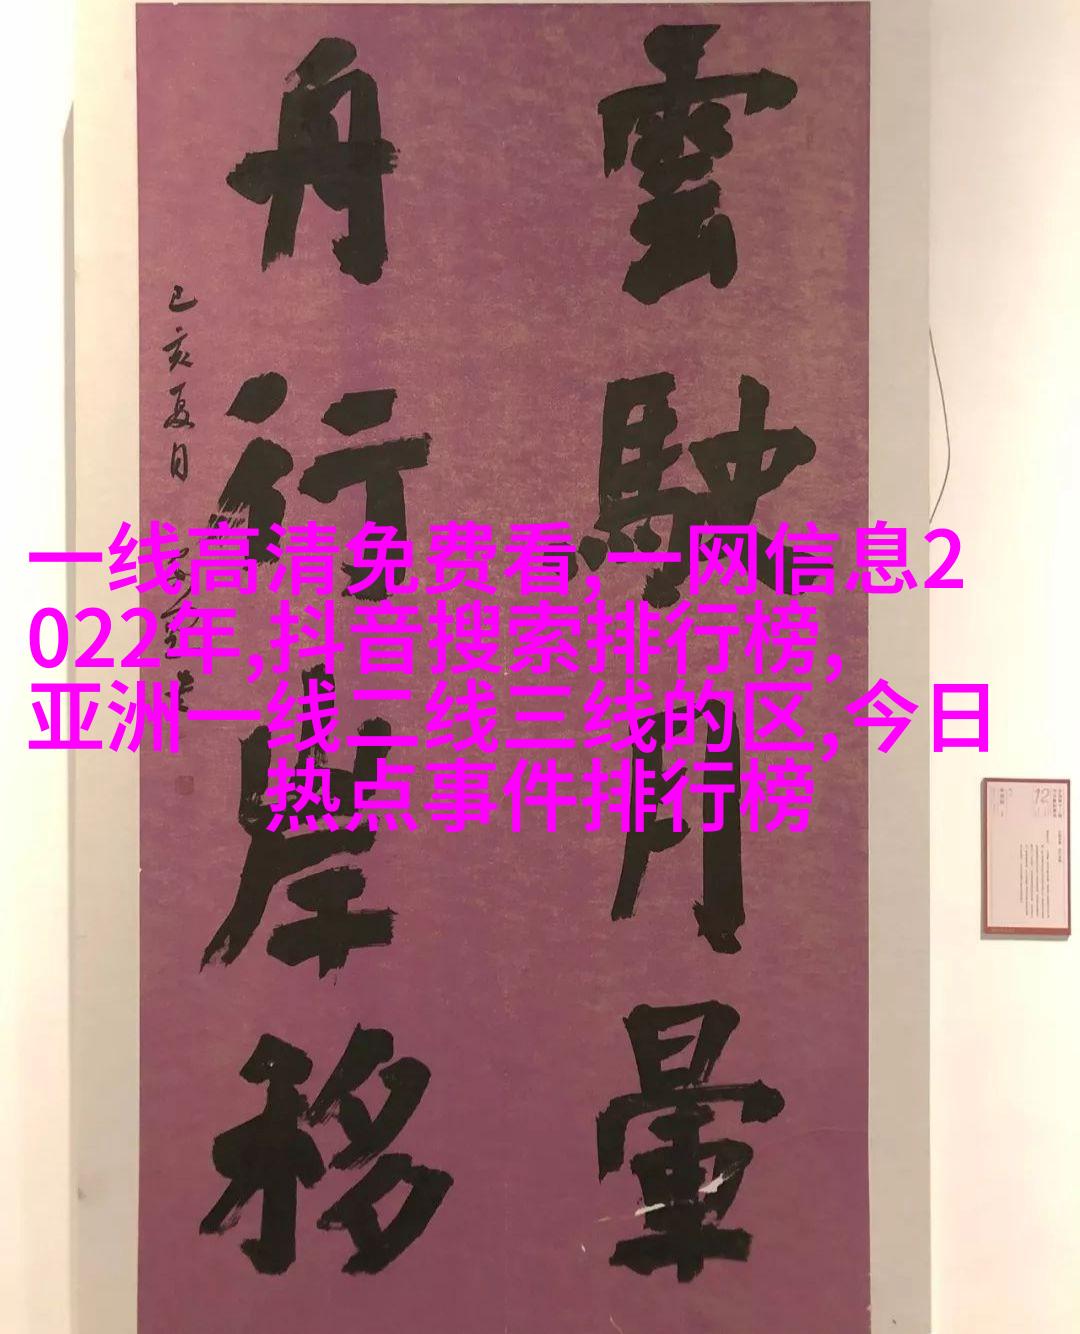 雲駛月暈
舟行岸移
己亥夏日
一线高清免费看,一网信息2
022年,抖音搜索排行榜,
亚洲一线二线三线的区,今日
热点事件排行榜
12